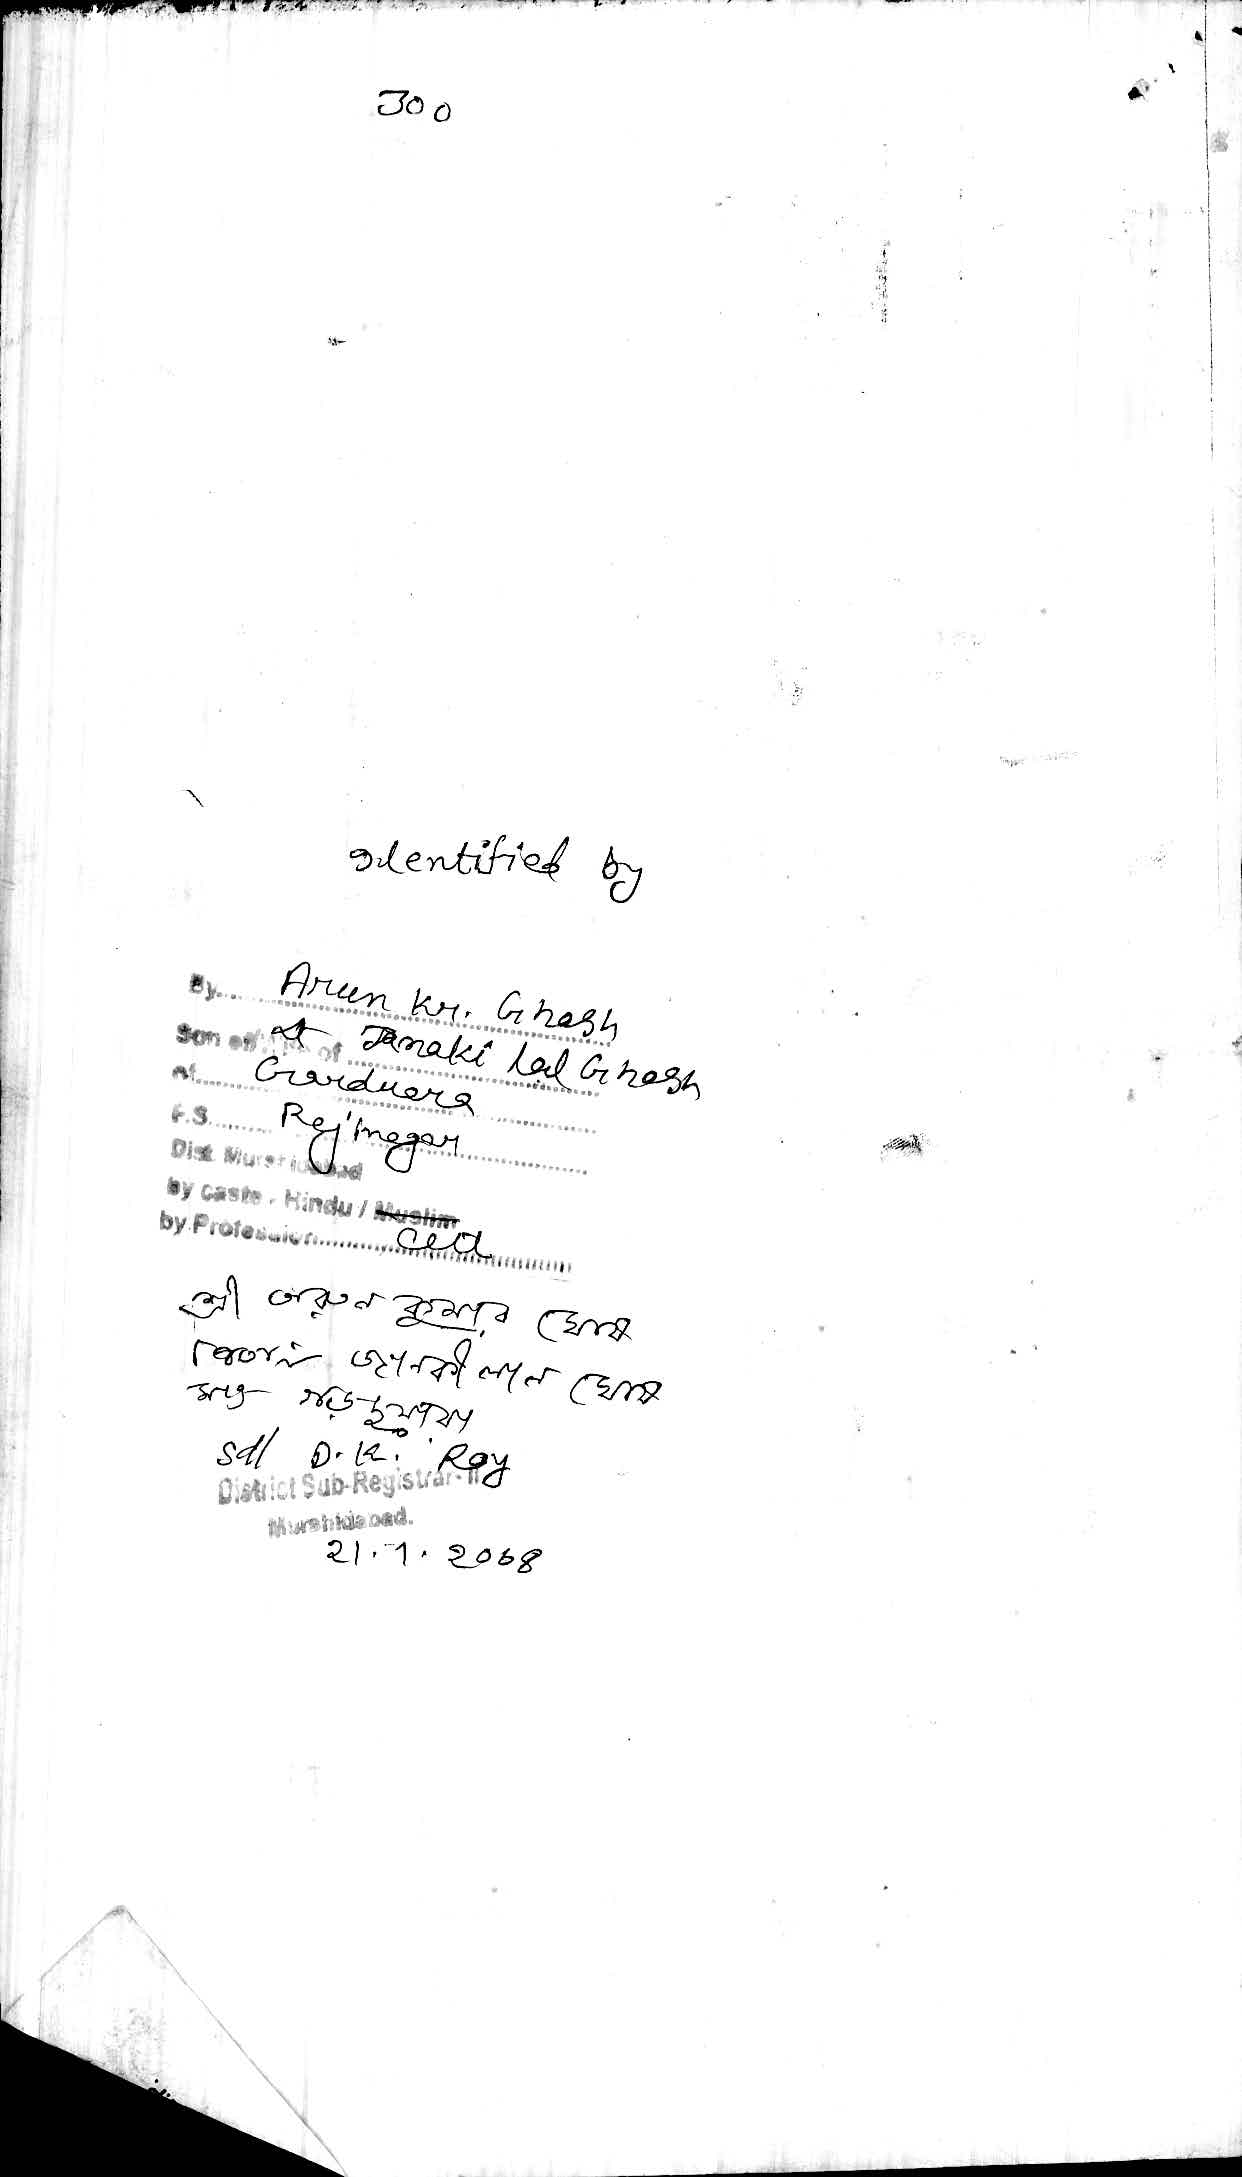 300
Identified by
By Arun Kr. Ghosh
Son of Lt Janaki Lal Ghosh
At Garduara
P.S. Rejinagar
Dist. Murshidabad
by caste - Hindu / Muslim
by Profession Cult
শ্রী অরুন কুমার ঘোষ
পিতা জানকী লাল ঘোষ
সাং গড়দুয়ারা
Sd/ D. K. Roy
District Sub-Registrar-II
Murshidabad.
21.1.2008